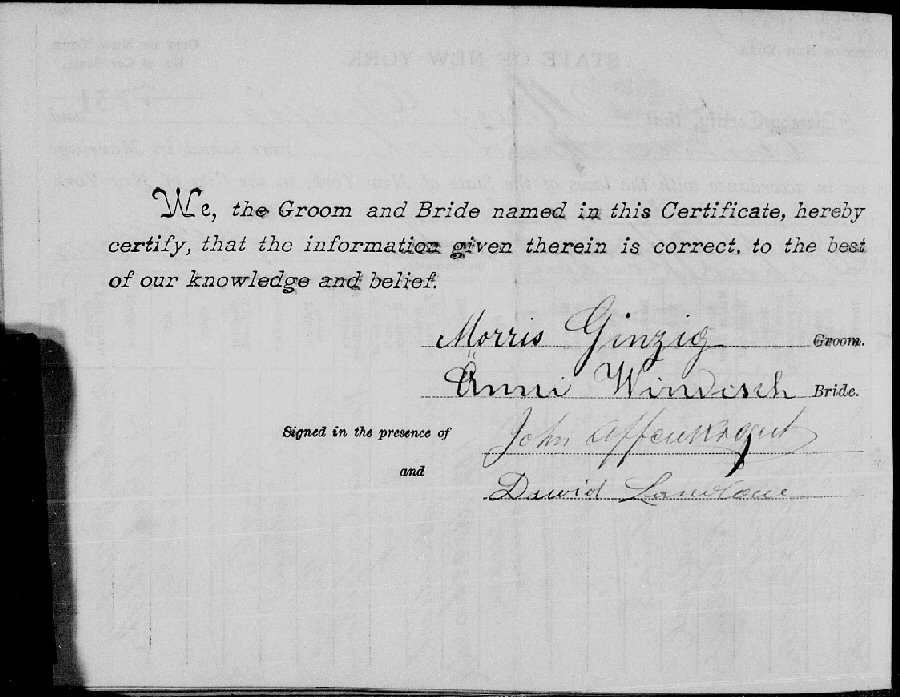 We, the Groom and Bride named in this Certificate, hereby
certify, that the information given therein is correct, to the best
of our knowledge and belief.
Morris Ginzig Groom.
Anni Windisch Bride.
Signed in the presence of John
and Dawid